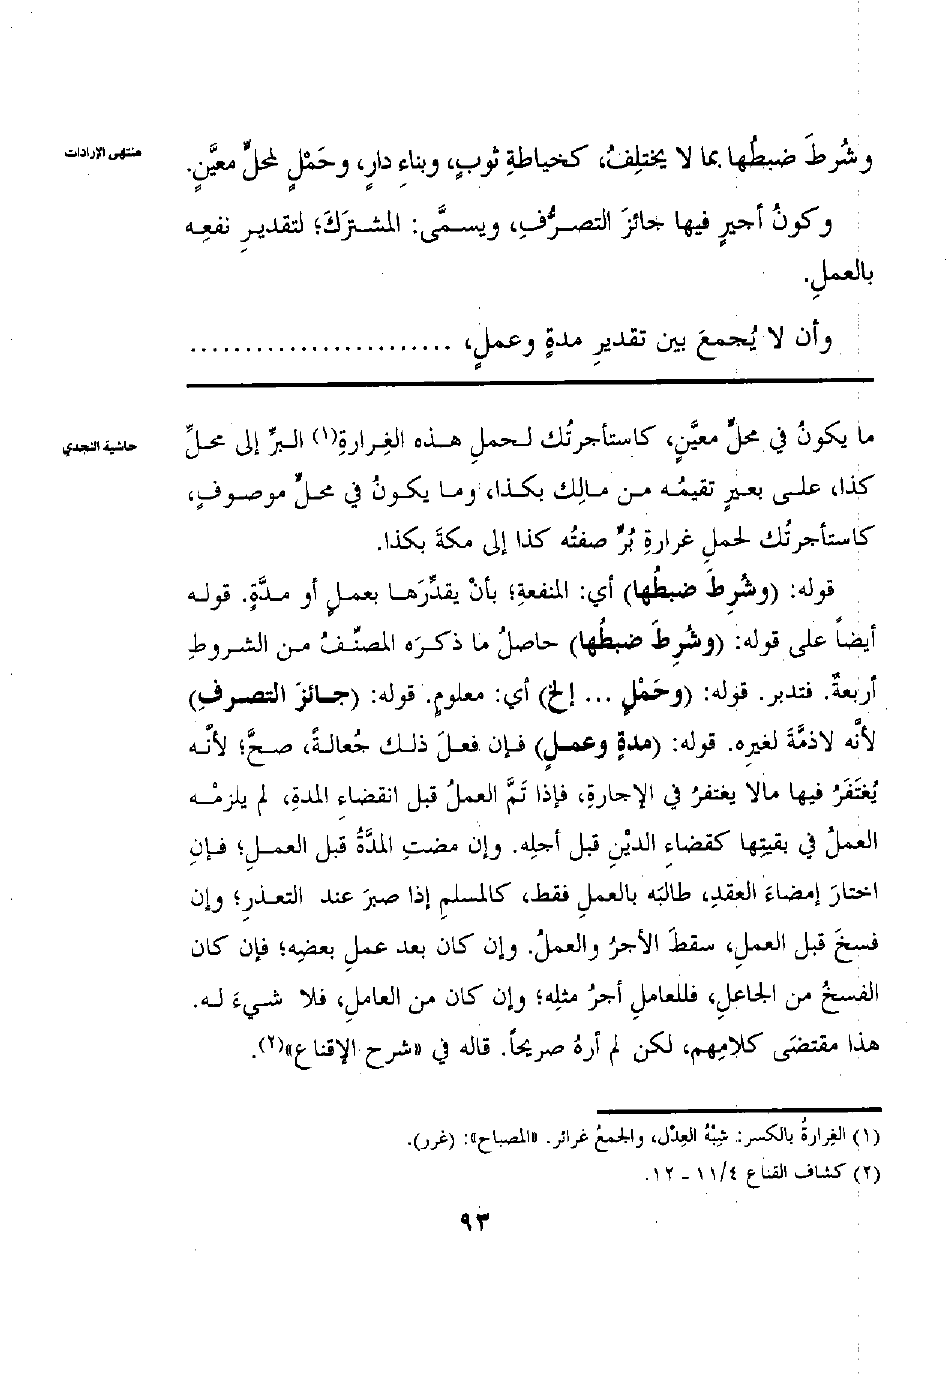 منتهى الإرادات
وشُرطَ ضبطُها بما لا يختلِفُ، كخياطةِ ثوبٍ، وبناءِ دارٍ، وحَمْلٍ لمحلٍّ معيَّنٍ.
وكونُ أجيرٍ فيها جائزَ التصرُّفِ، ويسمَّى: المشترَكَ؛ لتقديرِ نفعِه
بالعملِ.
وأن لا يُجمعَ بين تقديرِ مدةٍ وعملٍ، ........................
حاشية النجدي
ما يكونُ في محلٍّ معيَّنٍ، كاستأجرتُك لحملِ هذه الغِرارةِ(١) البرِّ إلى محلِّ
كذا، على بعيرٍ تقيمُه من مالِك بكذا، وما يكونُ في محلٍّ موصوفٍ،
كاستأجرتُك لحملِ غرارةِ بُرٍّ صفتُه كذا إلى مكةَ بكذا.
قوله: (وشُرِطَ ضبطُها) أي: المنفعةِ؛ بأنْ يقدِّرَها بعملٍ أو مدَّةٍ. قوله
أيضاً على قوله: (وشُرطَ ضبطُها) حاصلُ ما ذكرَه المصنِّفُ من الشروطِ
أربعةٌ. فتدبر. قوله: (وحَمْلٍ ... إلخ) أي: معلومٍ. قوله: (جائزَ التصرفِ)
لأنَّه لاذمَّةَ لغيرِه. قوله: (مدةٍ وعملٍ) فإن فعلَ ذلك جُعالةً، صحَّ؛ لأنَّه
يُغتَفَرُ فيها مالا يغتفرُ في الإجارةِ، فإذا تَمَّ العملُ قبل انقضاءِ المدةِ، لم يلزمْه
العملُ في بقيتِها كقضاءِ الديْنِ قبل أجلِه. وإن مضتِ المدَّةُ قبل العملِ؛ فإنِ
اختارَ إمضاءَ العقدِ، طالبَه بالعملِ فقط، كالمسلمِ إذا صبرَ عند التعذرِ؛ وإن
فسخَ قبل العملِ، سقطَ الأجرُ والعملُ. وإن كان بعد عملِ بعضِه؛ فإن كان
الفسخُ من الجاعلِ، فللعاملِ أجرُ مثلِه؛ وإن كان من العاملِ، فلا شيءَ له.
هذا مقتضَى كلامِهم، لكن لم أرهُ صريحاً. قاله في «شرح الإقناع»(٢).
(١) الغِرارةُ بالكسر: شِبْهُ العِدْل، والجمعُ غرائر. «المصباح»: (غرر).
(٢) كشاف القناع ٤/١١ - ١٢.
٩٣